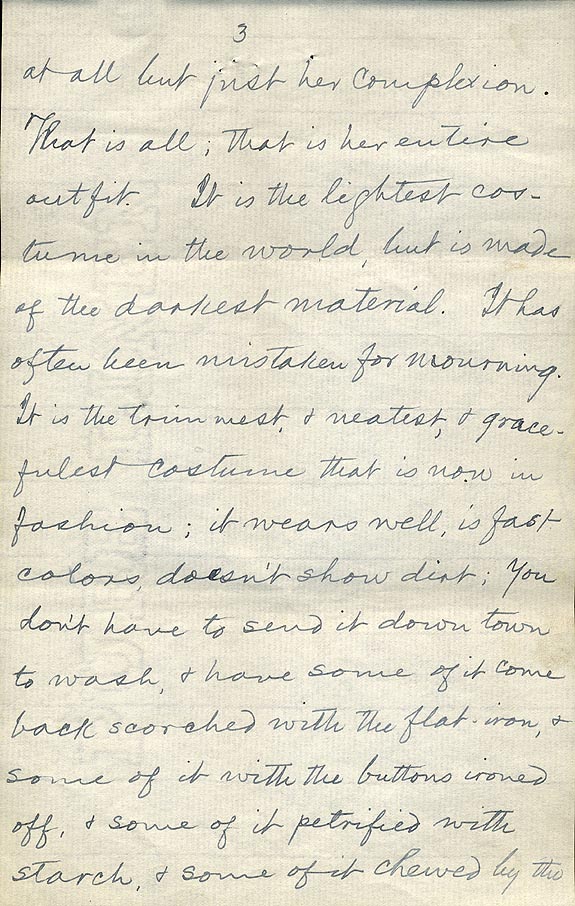 3
at all but just her complexion.
That is all; that is her entire
outfit. It is the lightest cos-
tume in the world, but is made
of the darkest material. It has
often been mistaken for mourning.
It is the trimmest, & neatest, & grace-
fulest costume that is now in
fashion; it wears well, is fast
colors, doesn't show dirt; You
don't have to send it down town
to wash, & have some of it come
back scorched with the flat-iron, &
some of it with the buttons ironed
off, & some of it petrified with
starch, & some of it chewed by the